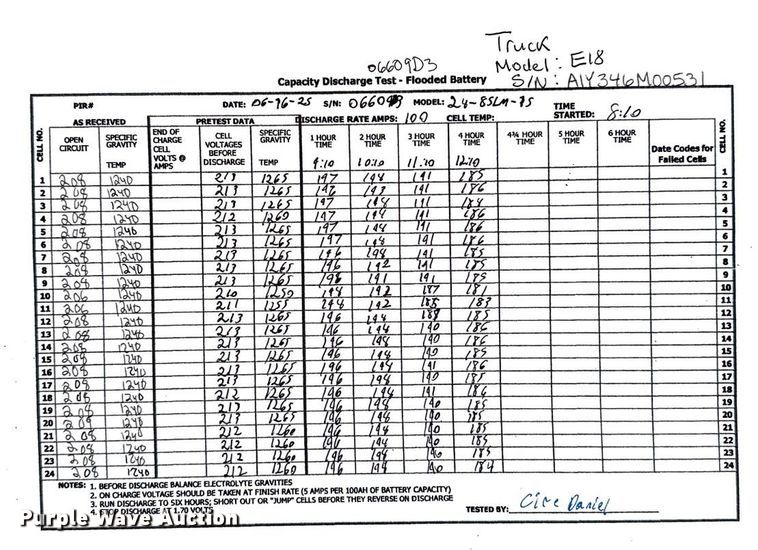 Truck
06609D3 Model: E18
Capacity Discharge Test - Flooded Battery S/N: A1Y346M00531
PIR# DATE: 06-16-25 S/N: 06609 MODEL: 24-85LM-75 TIME STARTED: 8:10
AS RECEIVED PRETEST DATA DISCHARGE RATE AMPS: 100 CELL TEMP:
CELL NO. OPEN CIRCUIT SPECIFIC GRAVITY TEMP END OF CHARGE CELL VOLTS @ AMPS CELL VOLTAGES BEFORE DISCHARGE SPECIFIC GRAVITY TEMP 1 HOUR TIME 2 HOUR TIME 3 HOUR TIME 4 HOUR TIME 4¾ HOUR TIME 5 HOUR TIME 6 HOUR TIME Date Codes for Failed Cells CELL NO.
9:10 10:10 11:10 12:10
1 208 1240 213 1265 197 194 191 185 1
2 208 1240 213 1265 197 193 191 186 2
3 208 1240 213 1265 197 194 191 184 3
4 208 1240 212 1260 197 194 191 186 4
5 208 1240 213 1265 197 194 191 186 5
6 208 1240 213 1265 197 194 191 186 6
7 208 1240 213 1265 196 194 191 185 7
8 208 1240 213 1265 196 192 191 185 8
9 208 1240 213 1265 191 191 185 9
10 206 1240 210 1250 194 192 187 181 10
11 206 1240 211 1255 194 192 188 183 11
12 208 1240 213 1265 196 194 189 185 12
13 208 1240 213 1265 196 194 190 186 13
14 208 1240 213 1265 196 194 190 186 14
15 208 1240 213 1265 196 194 190 185 15
16 208 1240 213 1265 196 194 191 186 16
17 208 1240 213 1265 196 194 190 185 17
18 208 1240 212 1265 196 194 191 186 18
19 208 1240 213 1265 196 194 190 185 19
20 208 1240 213 1265 196 194 190 185 20
21 208 1240 212 1260 196 194 190 185 21
22 208 1240 212 1260 196 194 190 185 22
23 208 1240 212 1260 196 194 190 185 23
24 208 1240 212 1260 196 194 190 184 24
NOTES: 1. BEFORE DISCHARGE BALANCE ELECTROLYTE GRAVITIES
2. ON CHARGE VOLTAGE SHOULD BE TAKEN AT FINISH RATE (5 AMPS PER 100AH OF BATTERY CAPACITY)
3. RUN DISCHARGE TO SIX HOURS; SHORT OUT OR "JUMP" CELLS BEFORE THEY REVERSE ON DISCHARGE
4. STOP DISCHARGE AT 1.70 VOLTS TESTED BY: Daniel
Purple Wave Auction